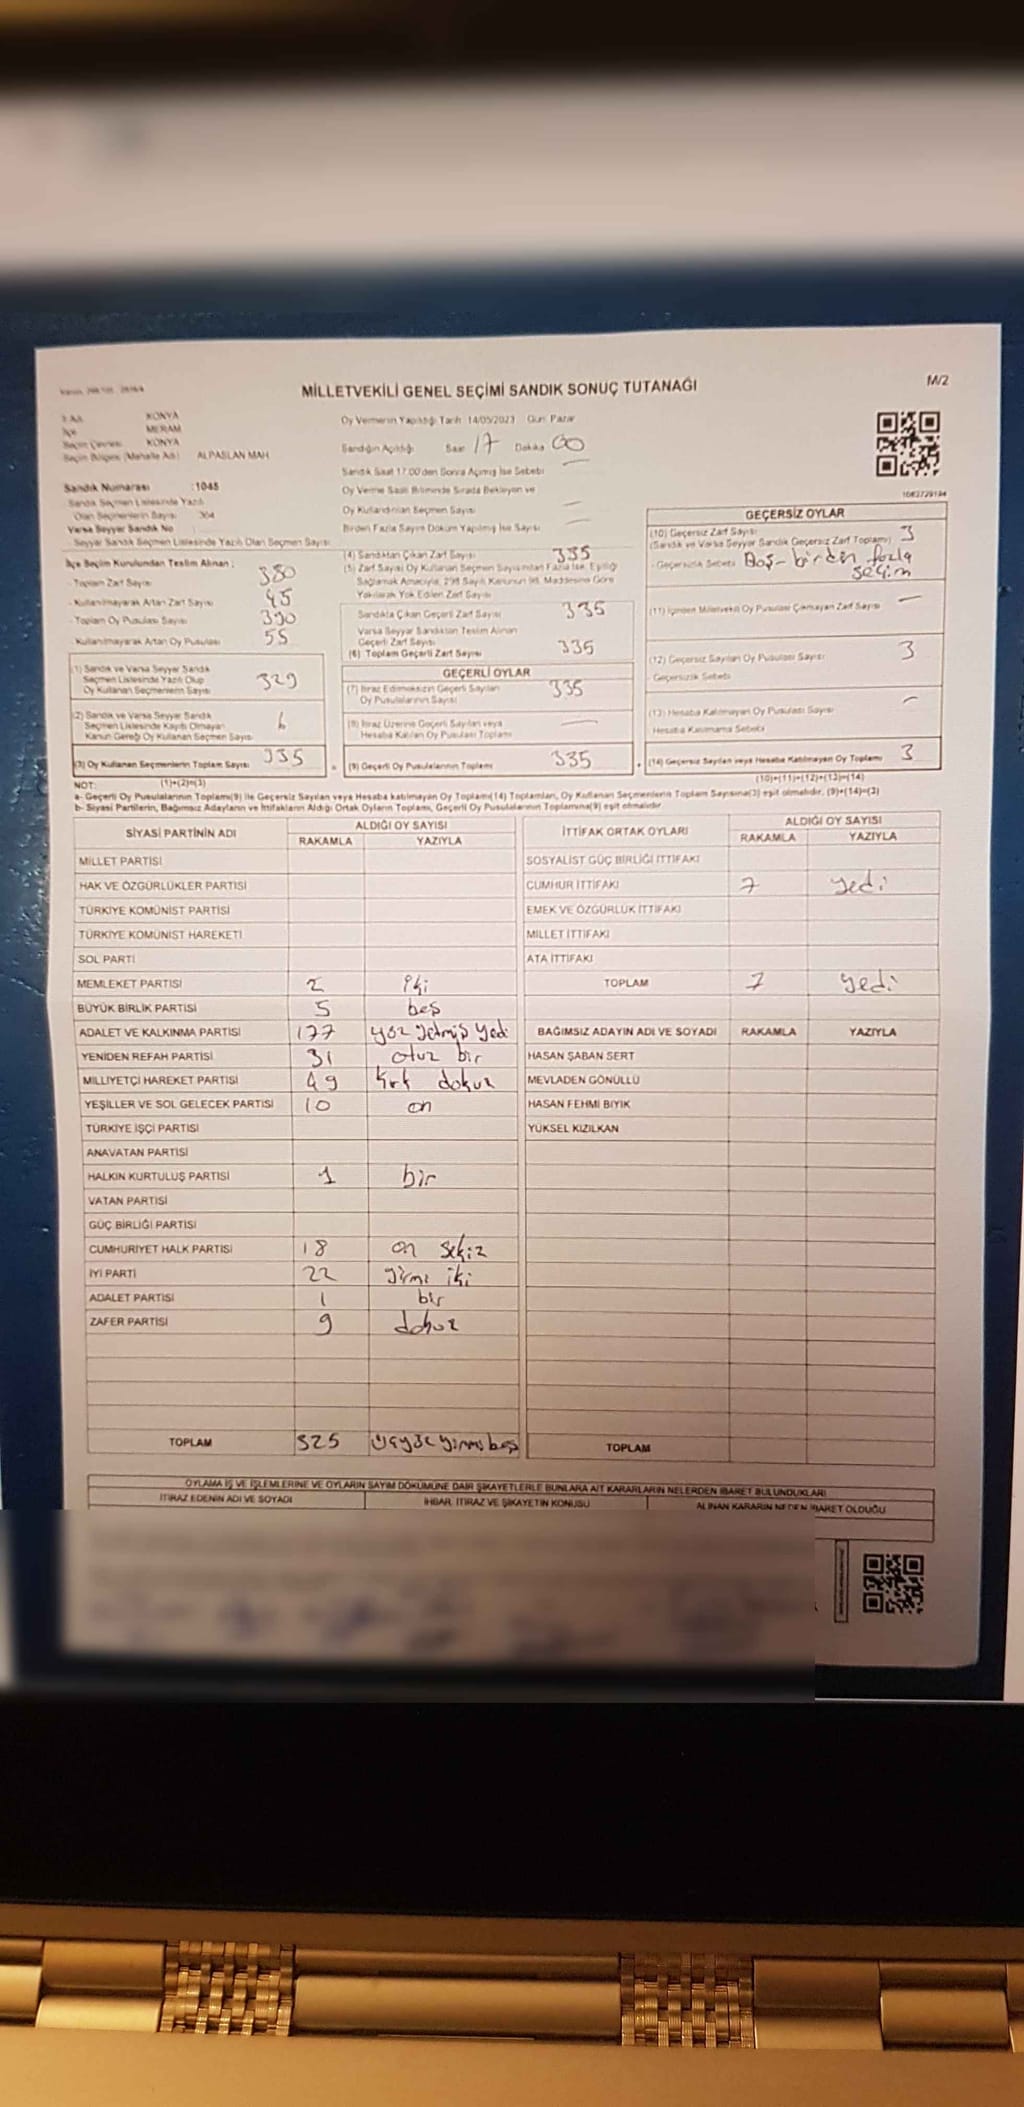 MİLLETVEKİLİ GENEL SEÇİMİ SANDIK SONUÇ TUTANAĞI
M/2
İlçe MERAM
KONYA
Seçim Çevresi KONYA
Seçim Bölgesi (Mahalle Adı) ALPASLAN MAH
Sandık Numarası : 1045
Sandık Seçmen Listesinde Yazılı
Olan Seçmenlerin Sayısı 364
Varsa Seyyar Sandık No
Seyyar Sandık Seçmen Listesinde Yazılı Olan Seçmen Sayısı
İlçe Seçim Kurulundan Teslim Alınan ;
- Toplam Zarf Sayısı 380
- Kullanılmayarak Artan Zarf Sayısı 45
- Toplam Oy Pusulası Sayısı 390
- Kullanılmayarak Artan Oy Pusulası 55
(1) Sandık ve Varsa Seyyar Sandık
Seçmen Listesinde Yazılı Olup
Oy Kullanan Seçmenlerin Sayısı 329
(2) Sandık ve Varsa Seyyar Sandık
Seçmen Listesinde Kayıtlı Olmayan
Kanun Gereği Oy Kullanan Seçmen Sayısı 6
(3) Oy Kullanan Seçmenlerin Toplam Sayısı 335
Oy Vermenin Yapıldığı Tarih 14/05/2023 Gün: Pazar
Sandığın Açıldığı Saat 17 Dakika 00
Sandık Saat 17.00'den Sonra Açılmış İse Sebebi —
Oy Verme Saati Bitiminde Sırada Bekleyen ve
Oy Kullandırılan Seçmen Sayısı —
Birden Fazla Sayım Döküm Yapılmış İse Sayısı —
(4) Sandıktan Çıkan Zarf Sayısı 335
(5) Zarf Sayısı Oy Kullanan Seçmen Sayısından Fazla İse, Eşitliği
Sağlamak Amacıyla, 298 Sayılı Kanunun 98. Maddesine Göre
Yakılarak Yok Edilen Zarf Sayısı
Sandıkta Çıkan Geçerli Zarf Sayısı 335
Varsa Seyyar Sandıktan Teslim Alınan
Geçerli Zarf Sayısı
(6) Toplam Geçerli Zarf Sayısı 335
GEÇERLİ OYLAR
(7) İtiraz Edilmeksizin Geçerli Sayılan
Oy Pusulalarının Sayısı 335
(8) İtiraz Üzerine Geçerli Sayılan veya
Hesaba Katılan Oy Pusulası Toplamı —
(9) Geçerli Oy Pusulalarının Toplamı 335
1083729194
GEÇERSİZ OYLAR
(10) Geçersiz Zarf Sayısı 3
(Sandık ve Varsa Seyyar Sandık Geçersiz Zarf Toplamı)
- Geçersizlik Sebebi Boş - birden fazla
seçim
(11) İçinden Milletvekili Oy Pusulası Çıkmayan Zarf Sayısı —
(12) Geçersiz Sayılan Oy Pusulası Sayısı 3
- Geçersizlik Sebebi
(13) Hesaba Katılmayan Oy Pusulası Sayısı —
Hesaba Katılmama Sebebi
(14) Geçersiz Sayılan veya Hesaba Katılmayan Oy Toplamı 3
NOT: (1)+(2)=(3) (10)+(11)+(12)+(13)=(14)
a- Geçerli Oy Pusulalarının Toplamı(9) ile Geçersiz Sayılan veya Hesaba katılmayan Oy Toplamı(14) Toplamları, Oy Kullanan Seçmenlerin Toplam Sayısına(3) eşit olmalıdır. (9)+(14)=(3)
b- Siyasi Partilerin, Bağımsız Adayların ve İttifakların Aldığı Ortak Oyların Toplamı, Geçerli Oy Pusulalarının Toplamına(9) eşit olmalıdır.
SİYASİ PARTİNİN ADI ALDIĞI OY SAYISI
RAKAMLA YAZIYLA
MİLLET PARTİSİ
HAK VE ÖZGÜRLÜKLER PARTİSİ
TÜRKİYE KOMÜNİST PARTİSİ
TÜRKİYE KOMÜNİST HAREKETİ
SOL PARTİ
MEMLEKET PARTİSİ 2 iki
BÜYÜK BİRLİK PARTİSİ 5 beş
ADALET VE KALKINMA PARTİSİ 177 yüz yetmiş yedi
YENİDEN REFAH PARTİSİ 31 otuz bir
MİLLİYETÇİ HAREKET PARTİSİ 49 kırk dokuz
YEŞİLLER VE SOL GELECEK PARTİSİ 10 on
TÜRKİYE İŞÇİ PARTİSİ
ANAVATAN PARTİSİ
HALKIN KURTULUŞ PARTİSİ 1 bir
VATAN PARTİSİ
GÜÇ BİRLİĞİ PARTİSİ
CUMHURİYET HALK PARTİSİ 18 on sekiz
İYİ PARTİ 22 yirmi iki
ADALET PARTİSİ 1 bir
ZAFER PARTİSİ 9 dokuz
TOPLAM 325 üçyüz yirmi beş
İTTİFAK ORTAK OYLARI ALDIĞI OY SAYISI
RAKAMLA YAZIYLA
SOSYALİST GÜÇ BİRLİĞİ İTTİFAKI
CUMHUR İTTİFAKI 7 yedi
EMEK VE ÖZGÜRLÜK İTTİFAKI
MİLLET İTTİFAKI
ATA İTTİFAKI
TOPLAM 7 yedi
BAĞIMSIZ ADAYIN ADI VE SOYADI RAKAMLA YAZIYLA
HASAN ŞABAN SERT
MEVLADEN GÖNÜLLÜ
HASAN FEHMİ BIYIK
YÜKSEL KIZILKAN
TOPLAM
OYLAMA İŞ VE İŞLEMLERİNE VE OYLARIN SAYIM DÖKÜMÜNE DAİR ŞİKAYETLERLE BUNLARA AİT KARARLARIN NELERDEN İBARET BULUNDUKLARI
İTİRAZ EDENİN ADI VE SOYADI İHBAR, İTİRAZ VE ŞİKAYETİN KONUSU ALINAN KARARIN NEDEN İBARET OLDUĞU